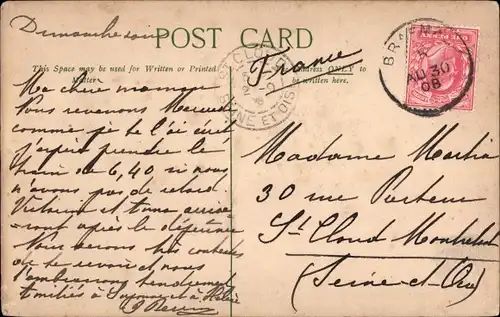 Dimanche soir
POST CARD
This Space may be used for Written or Printed
Matter.
Address ONLY to
be written here.
France
BRAEMAR
AU 30
08
SEINE ET OISE
Ma chère maman
Nous revenons Mercredi
comme je te l'ai écrit
J'espère prendre le
train de 6,40 si nous
n'avons pas de retard.
Victoria et
après le déjeuner
Nous serons très contents
de te revoir et nous
t'embrassons tendrement
Amitiés à et à
Madame
30 rue
St Cloud Montretout
(Seine-et-Oise)